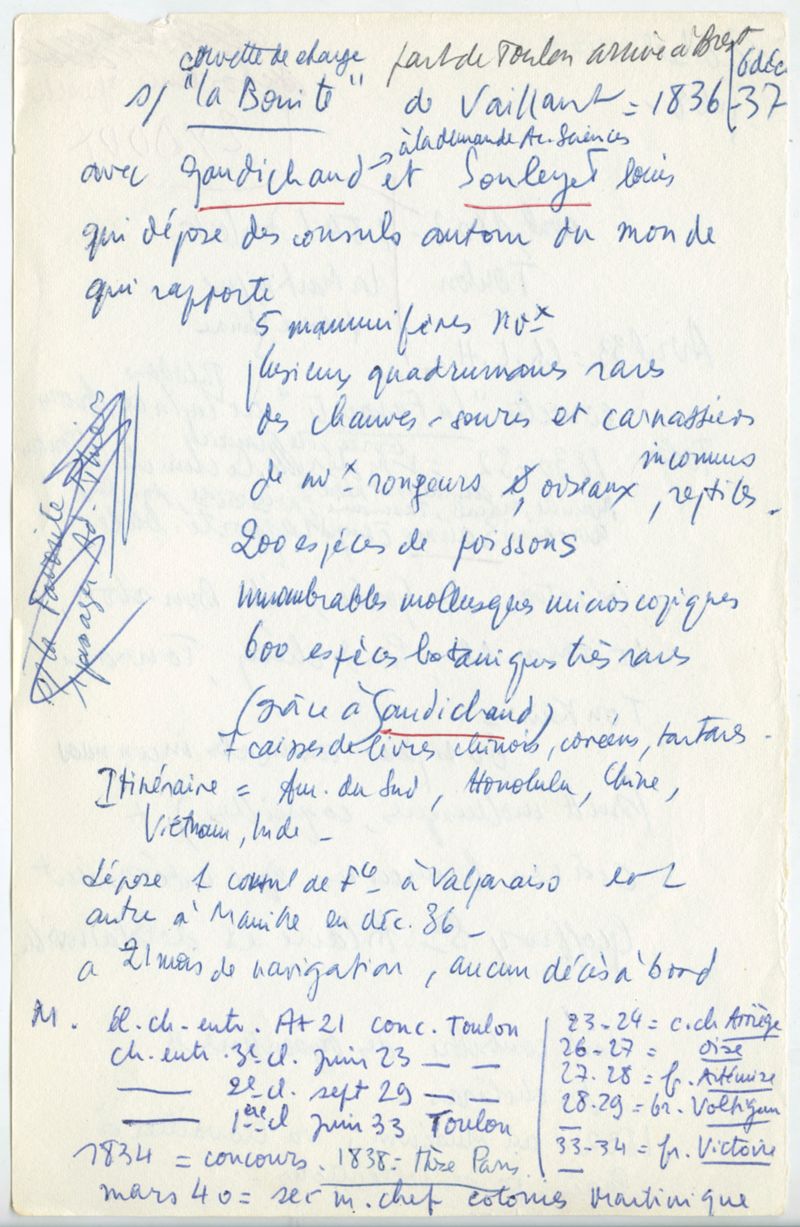 corvette de charge part de Toulon arrive à Brest
s/ "la Bonite" de Vaillant = 1836-37 6 déc
à la demande Ac. Sciences
avec Gaudichaud et Souleyet Louis
qui dépose des consuls autour du monde
qui rapporte
5 mammifères nvx
plusieurs quadrumanes rares
des chauves-souris et carnassiers
inconnus
de nvx rongeurs & oiseaux, reptiles.
200 espèces de poissons
innombrables mollusques microscopiques
600 espèces botaniques très rares
(grâce à Gaudichaud)
7 caisses de livres chinois, coréens, tartares.
Itinéraire = Am. du Sud, Honolulu, Chine,
Vietnam, Inde -
dépose 1 consul de Fce à Valparaiso et 1
autre à Manille en déc. 36_
a 21 mois de navigation, aucun décès à bord
M. él. ch. entr. At 21 conc. Toulon
ch. entr. 3e cl. Juin 23 _ _
___ 2e cl. sept 29 _
___ 1ère cl Juin 33 Toulon
1834 = concours. 1838 = thèse Paris
mars 40 = sec m. chef colonies Martinique
23-24 = c. ch Arriège
26-27 = Oise
27.28 = fr. Artémise
28.29 = br. Voltigeur
33-34 = fr. Victoire
la Favorite